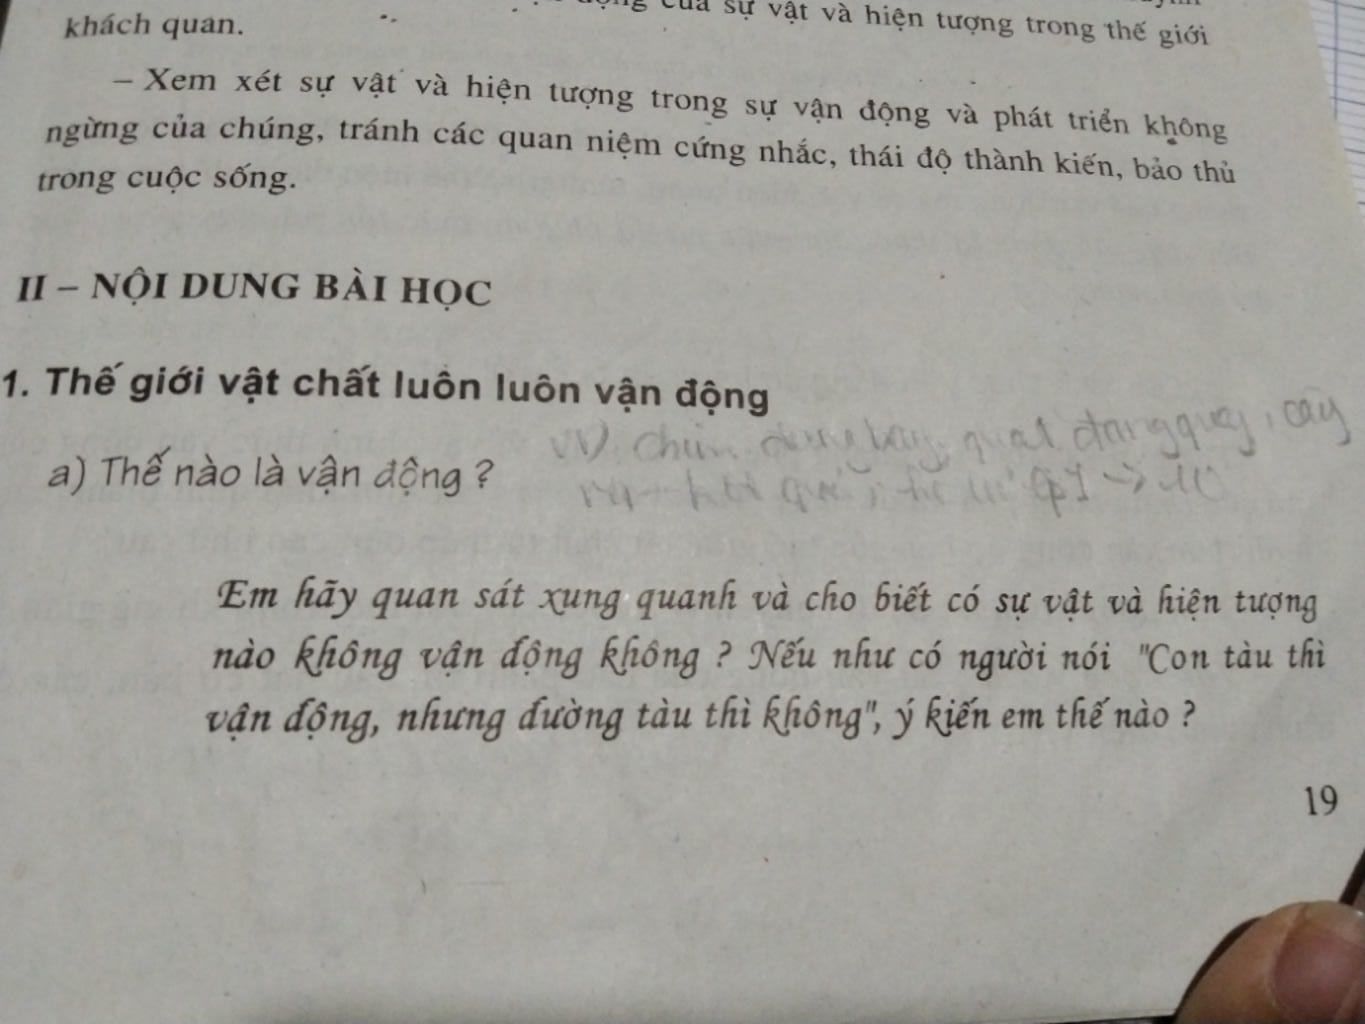 của sự vật và hiện tượng trong thế giới
khách quan.
– Xem xét sự vật và hiện tượng trong sự vận động và phát triển không
ngừng của chúng, tránh các quan niệm cứng nhắc, thái độ thành kiến, bảo thủ
trong cuộc sống.
II – NỘI DUNG BÀI HỌC
1. Thế giới vật chất luôn luôn vận động
VD chim đang bay, quạt đang quay, cây
a) Thế nào là vận động ?
Em hãy quan sát xung quanh và cho biết có sự vật và hiện tượng
nào không vận động không ? Nếu như có người nói "Con tàu thì
vận động, nhưng đường tàu thì không", ý kiến em thế nào ?
19